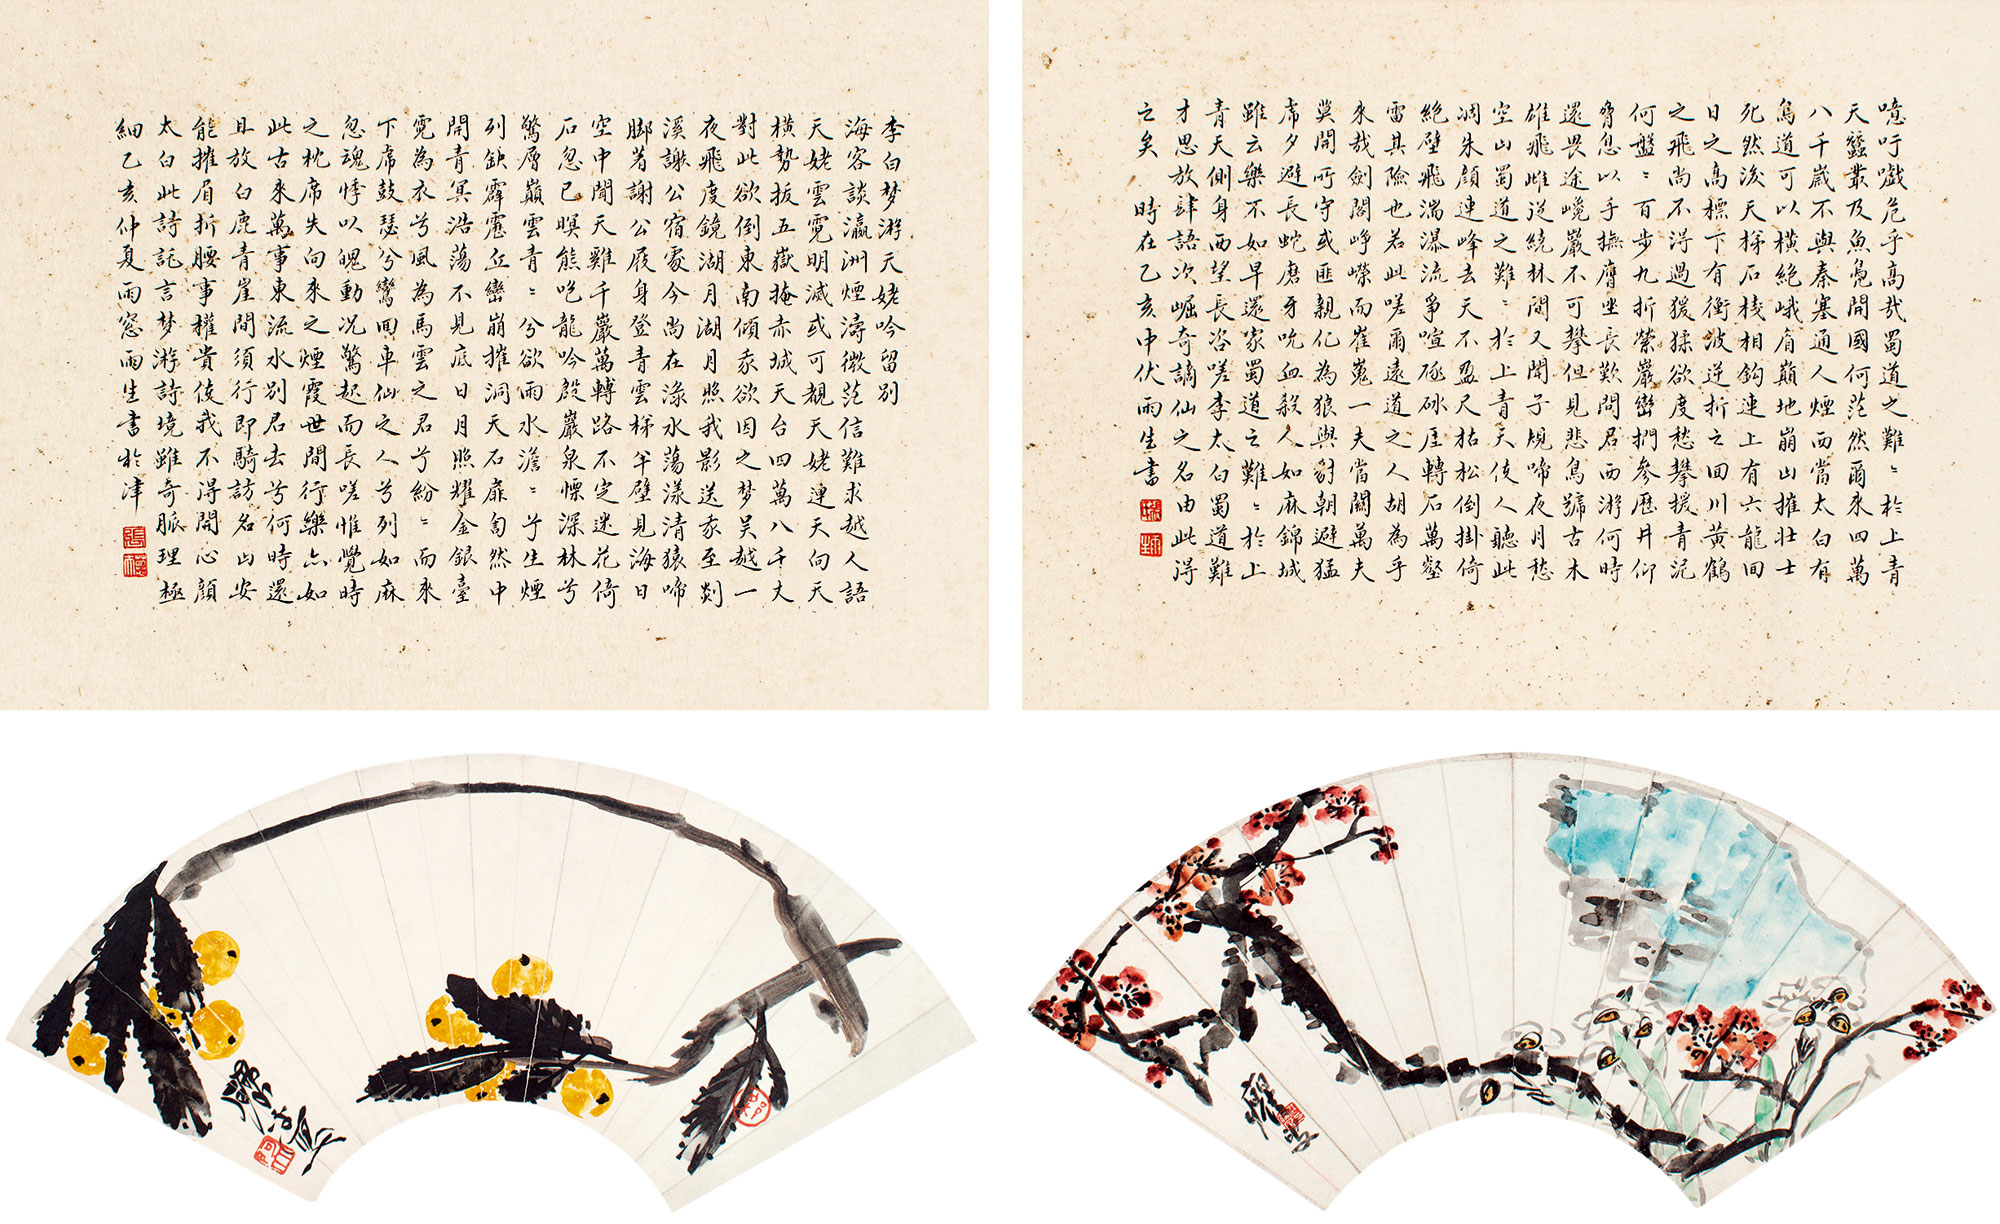 噫吁嚱危乎高哉蜀道之難〻於上青
天蠶叢及魚鳧開國何茫然爾來四萬
八千歲不與秦塞通人煙西當太白有
鳥道可以橫絕峨眉巔地崩山摧壯士
死然後天梯石棧相鈎連上有六龍回
日之高標下有衝波逆折之回川黃鶴
之飛尚不得過猨猱欲度愁攀援青泥
何盤〻百步九折縈巖巒捫參歷井仰
脅息以手撫膺坐長歎問君西游何時
還畏途巉巖不可攀但見悲鳥號古木
雄飛雌從繞林間又聞子規啼夜月愁
空山蜀道之難〻於上青天使人聽此
凋朱顏連峰去天不盈尺枯松倒掛倚
絕壁飛湍瀑流爭喧豗砯厓轉石萬壑
雷其險也若此嗟爾遠道之人胡為乎
來哉劍閣崢嶸而崔嵬一夫當關萬夫
莫開所守或匪親化為狼與豺朝避猛
虎夕避長蛇磨牙吮血殺人如麻錦城
雖云樂不如早還家蜀道之難〻於上
青天側身西望長咨嗟李太白蜀道難
才思放肆語次崛奇謫仙之名由此得
之矣 時在乙亥中伏雨生書
李白梦游天姥吟留别
海客談瀛洲煙濤微茫信難求越人語
天姥雲霓明滅或可覩天姥連天向天
橫勢拔五嶽掩赤城天台四萬八千丈
對此欲倒東南傾我欲因之梦吴越一
夜飛度鏡湖月湖月照我影送我至剡
溪謝公宿處今尚在淥水蕩漾清猿啼
脚著謝公屐身登青雲梯半壁見海日
空中聞天雞千巖萬轉路不定迷花倚
石忽已暝熊咆龍吟殷巖泉慄深林兮
驚層巔雲青〻兮欲雨水澹〻兮生煙
列缺霹靂丘巒崩摧洞天石扉訇然中
開青冥浩蕩不見底日月照耀金銀臺
霓為衣兮風為馬雲之君兮紛〻而來
下虎鼓瑟兮鸞回車仙之人兮列如麻
忽魂悸以魄動況驚起而長嗟惟覺時
之枕席失向來之煙霞世間行樂亦如
此古來萬事東流水别君去兮何時還
且放白鹿青崖間須行即騎訪名山安
能摧眉折腰事權貴使我不得開心顏
太白此詩託言梦游詩境雖奇脈理極
細乙亥仲夏雨窓雨生書於津